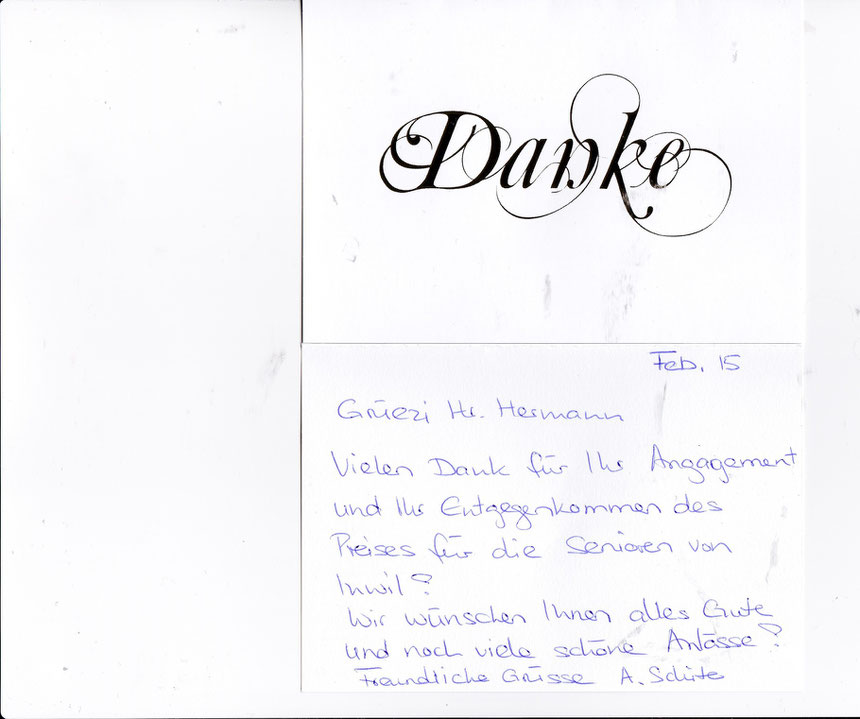 Danke
Feb. 15
Grüezi Hr. Hermann
Vielen Dank für Ihr Angagement
und Ihr Entgegenkommen des
Preises für die Senioren von
Inwil!
Wir wünschen Ihnen alles Gute
und noch viele schöne Anlässe!
Freundliche Grüsse A.